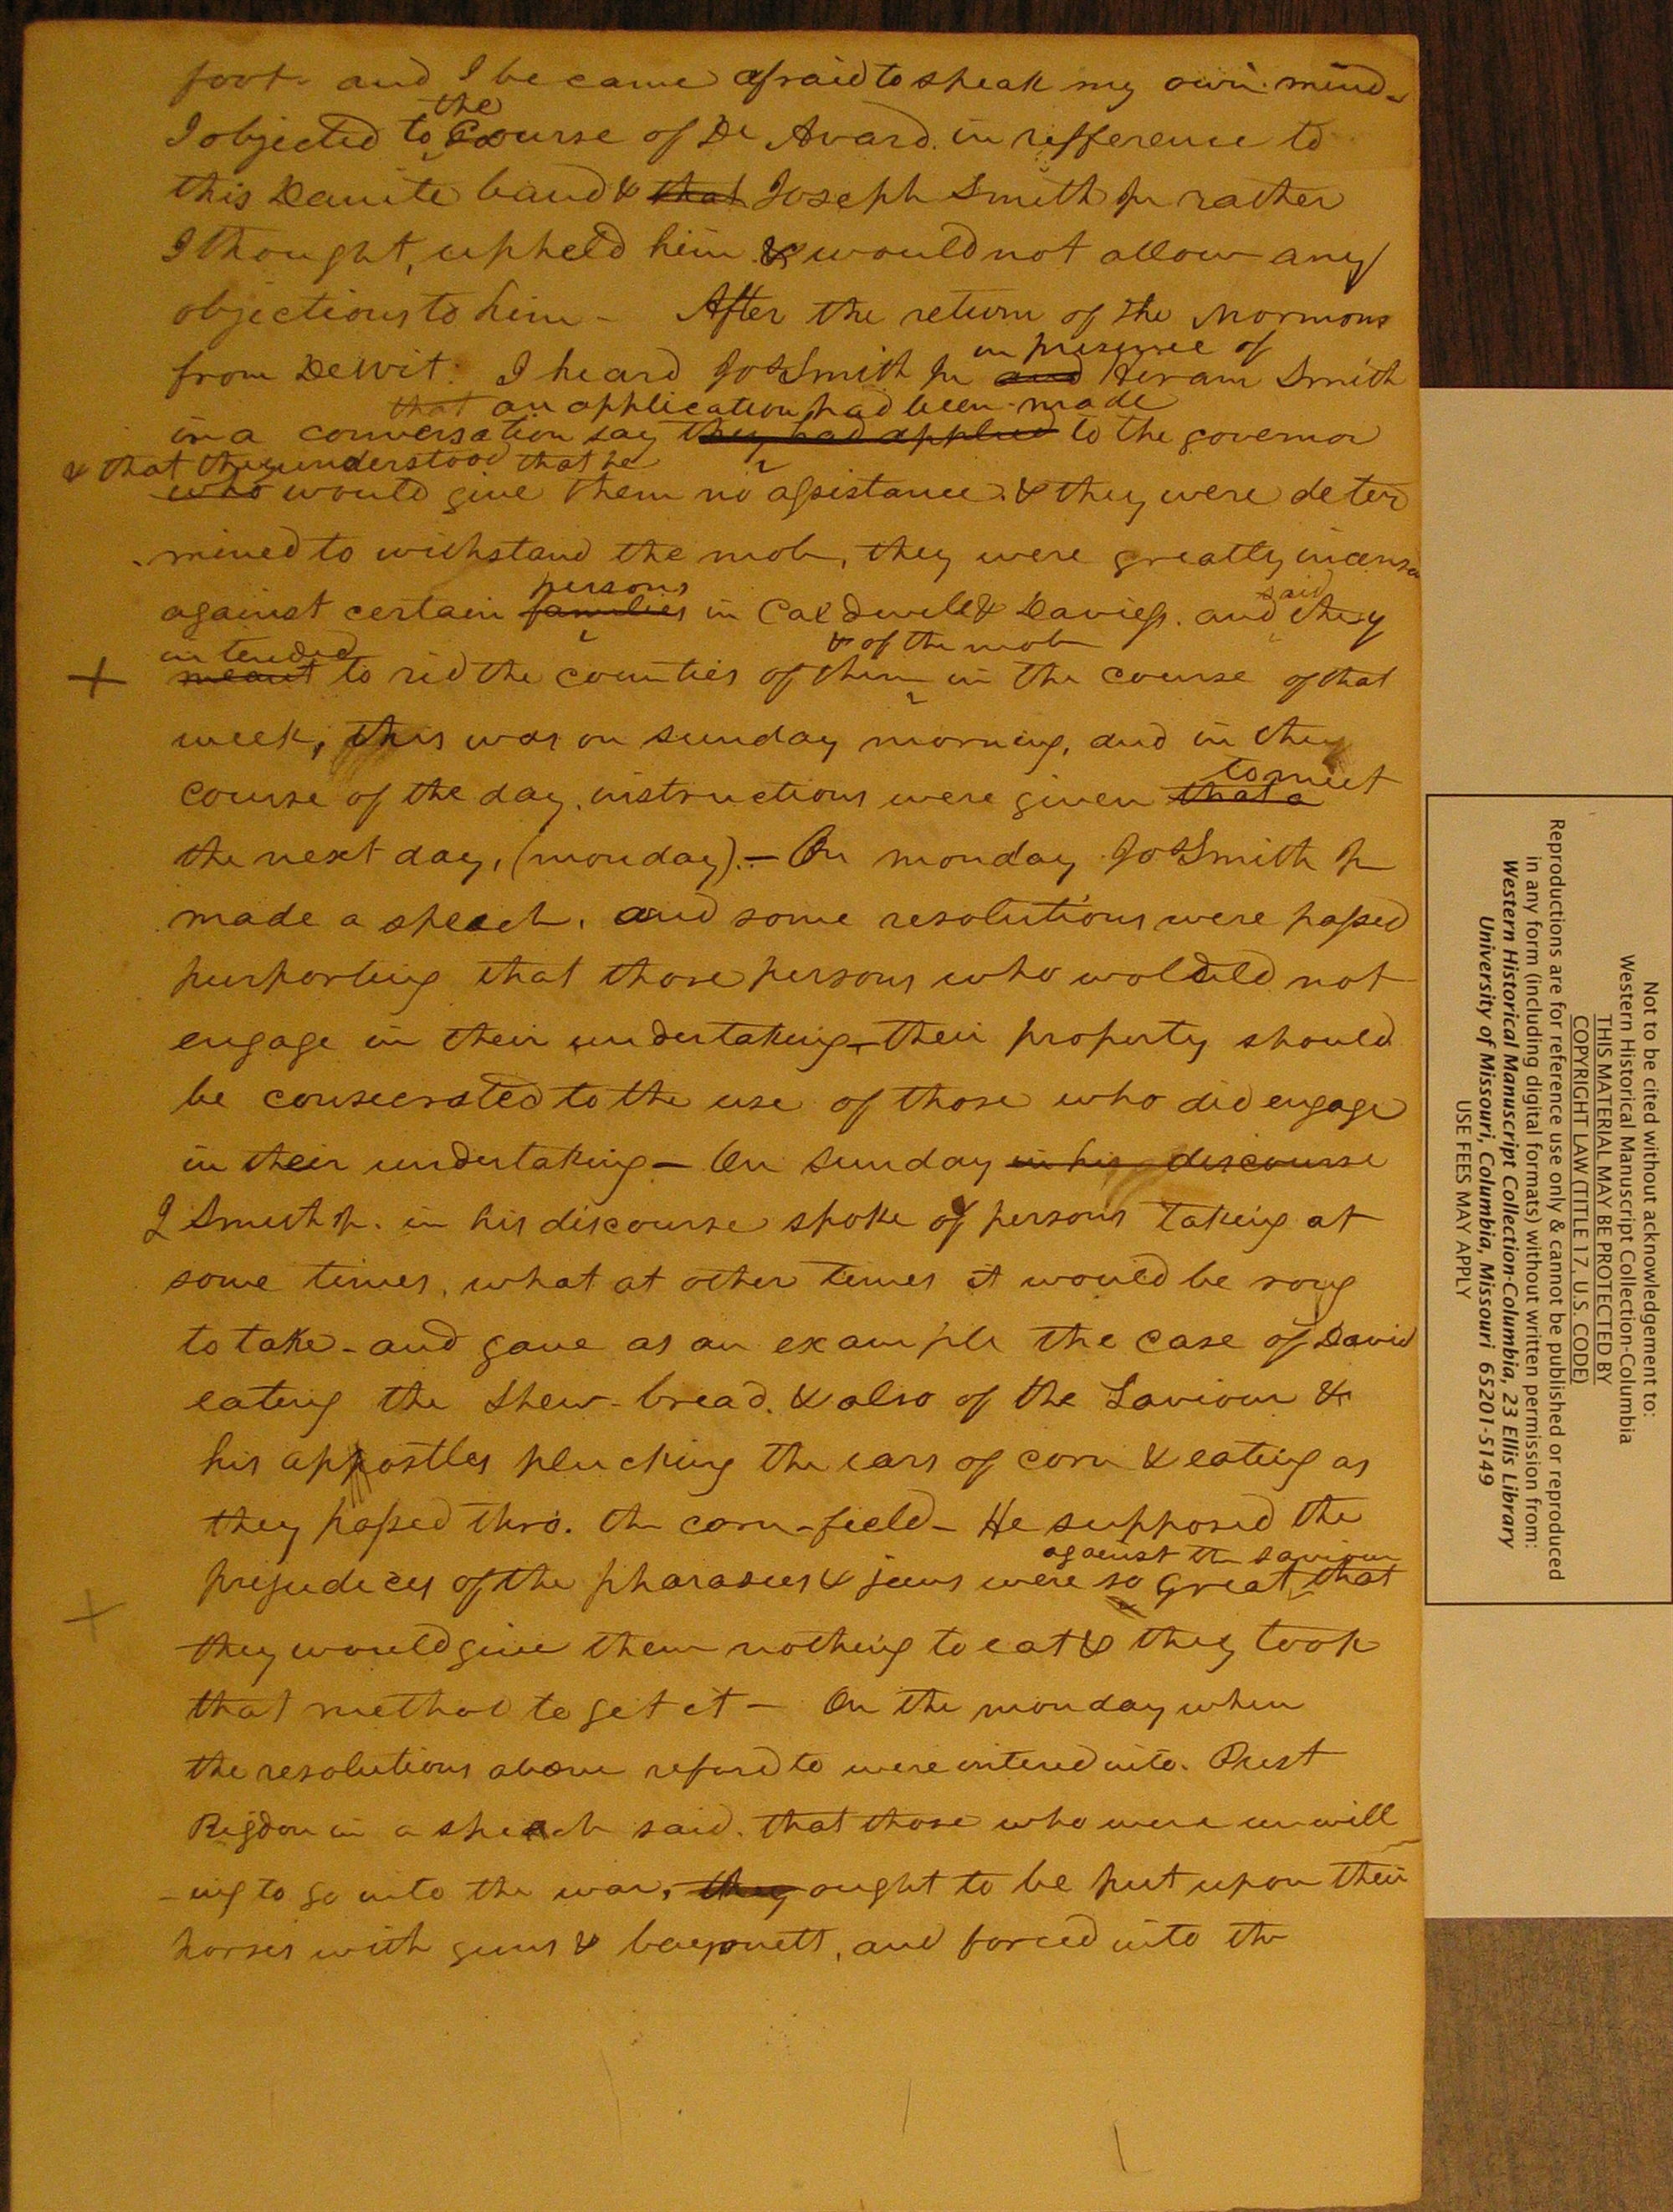 foot and I became afraid to speak my own mind-
the
I objected to Course of Dr Avard. in refference to
this Danite band & that Joseph Smith Jr rather
I thought, upheld him & would not allow any
objections to him - After the return of the Mormons
in presence of
from Dewit. I heard Jos Smith Jr and Hiram Smith
that an application had been made
in a conversation say they had applied to the governor
& that they understood that he
who would give them no assistance. & they were deter
mined to withstand the mob, they were greatly incensed
persons said
against certain families in Caldwell & Daviess. and they
intended & of the mob
meant to rid the counties of them in the course of that
week, this was on sunday morning, and in the
to meet
course of the day, instructions were given that a
the next day, (monday).- On monday Jos Smith Jr
made a speech, and some resolutions were passed
purporting that those persons who would not
engage in their undertaking - their property should
be consecrated to the use of those who did engage
in their undertaking - On Sunday in his discourse
J Smith Jr. in his discourse spoke of persons taking at
some times, what at other times it would be rong
to take - and gave as an example the case of David
eating the Shew-bread. & also of the Saviour &
his appostles plucking the ears of corn & eating as
they passed thro. the corn-field - He supposed the
against the saviour
prejudices of the pharasees & jews were so great that
they would give them nothing to eat & they took
that method to get it - On the monday when
the resolutions above refured to were entered into. Prest
Rigdon in a speech said. that those who were unwill
-ing to go into the war, they ought to be put upon their
horses with guns & bayonett, and forced into the
Not to be cited without acknowledgement to:
Western Historical Manuscript Collection-Columbia
THIS MATERIAL MAY BE PROTECTED BY
COPYRIGHT LAW (TITLE 17, U.S. CODE)
Reproductions are for reference use only & cannot be published or reproduced
in any form (including digital formats) without written permission from:
Western Historical Manuscript Collection-Columbia, 23 Ellis Library
University of Missouri, Columbia, Missouri 65201-5149
USE FEES MAY APPLY